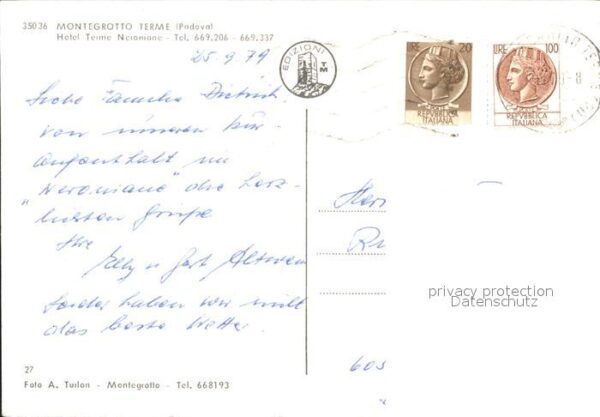 35036 MONTEGROTTO TERME (Padova)
Hotel Terme Neroniane - Tel. 669.206 - 669.337
25.9.79
EDIZIONI
TM
LIRE 20
REPVBBLICA
ITALIANA
LIRE 100
REPVBBLICA
ITALIANA
Liebe Familie Dietrich
von unserem Kur-
aufenthalt im
"Neroniane" die herz-
lichsten Grüße
Ihre
Elly u Gert
Leider haben wir nicht
das beste Wetter.
privacy protection
Datenschutz
605
27
Foto A. Turlon - Montegrotto - Tel. 668193